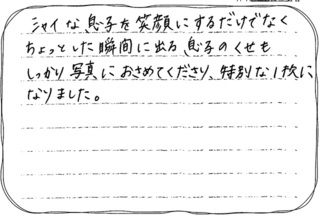 シャイな息子を笑顔にするだけでなく
ちょっとした瞬間に出る息子のくせも
しっかり写真におさめてくださり、特別な1枚に
なりました。